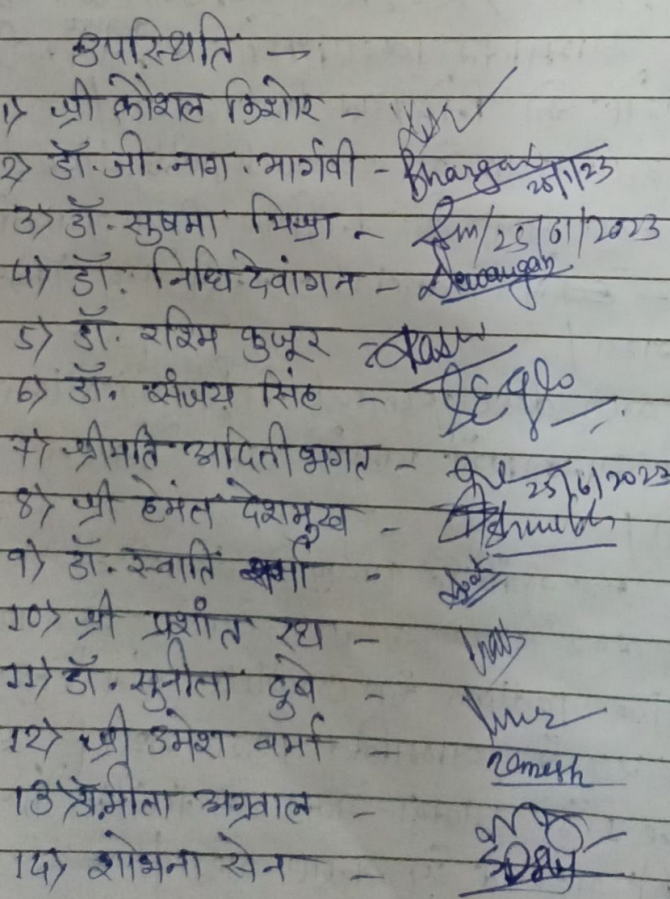 उपस्थिति →
1) श्री कौशल किशोर -
2) डॉ. जी. नाग. भार्गवी - Bhargavi 25/1/23
3) डॉ. सुषमा मिश्रा - 25/01/2023
4) डॉ. निधि देवांगन - Dewangan
5) डॉ. रश्मि कुजूर
6) डॉ. संजय सिंह -
7) श्रीमति अदिती भगत - 25/6/2023
8) श्री हेमंत देशमुख -
9) डॉ. स्वाति शर्मा -
10) श्री प्रशांत रथ -
11) डॉ. सुनीता दुबे -
12) श्री उमेश वर्मा - Umesh
13) डॉ. मीता अग्रवाल -
14) शोभना सेन -